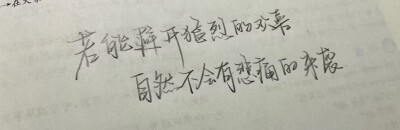 若能避开猛烈的欢喜
自然不会有悲痛的来袭